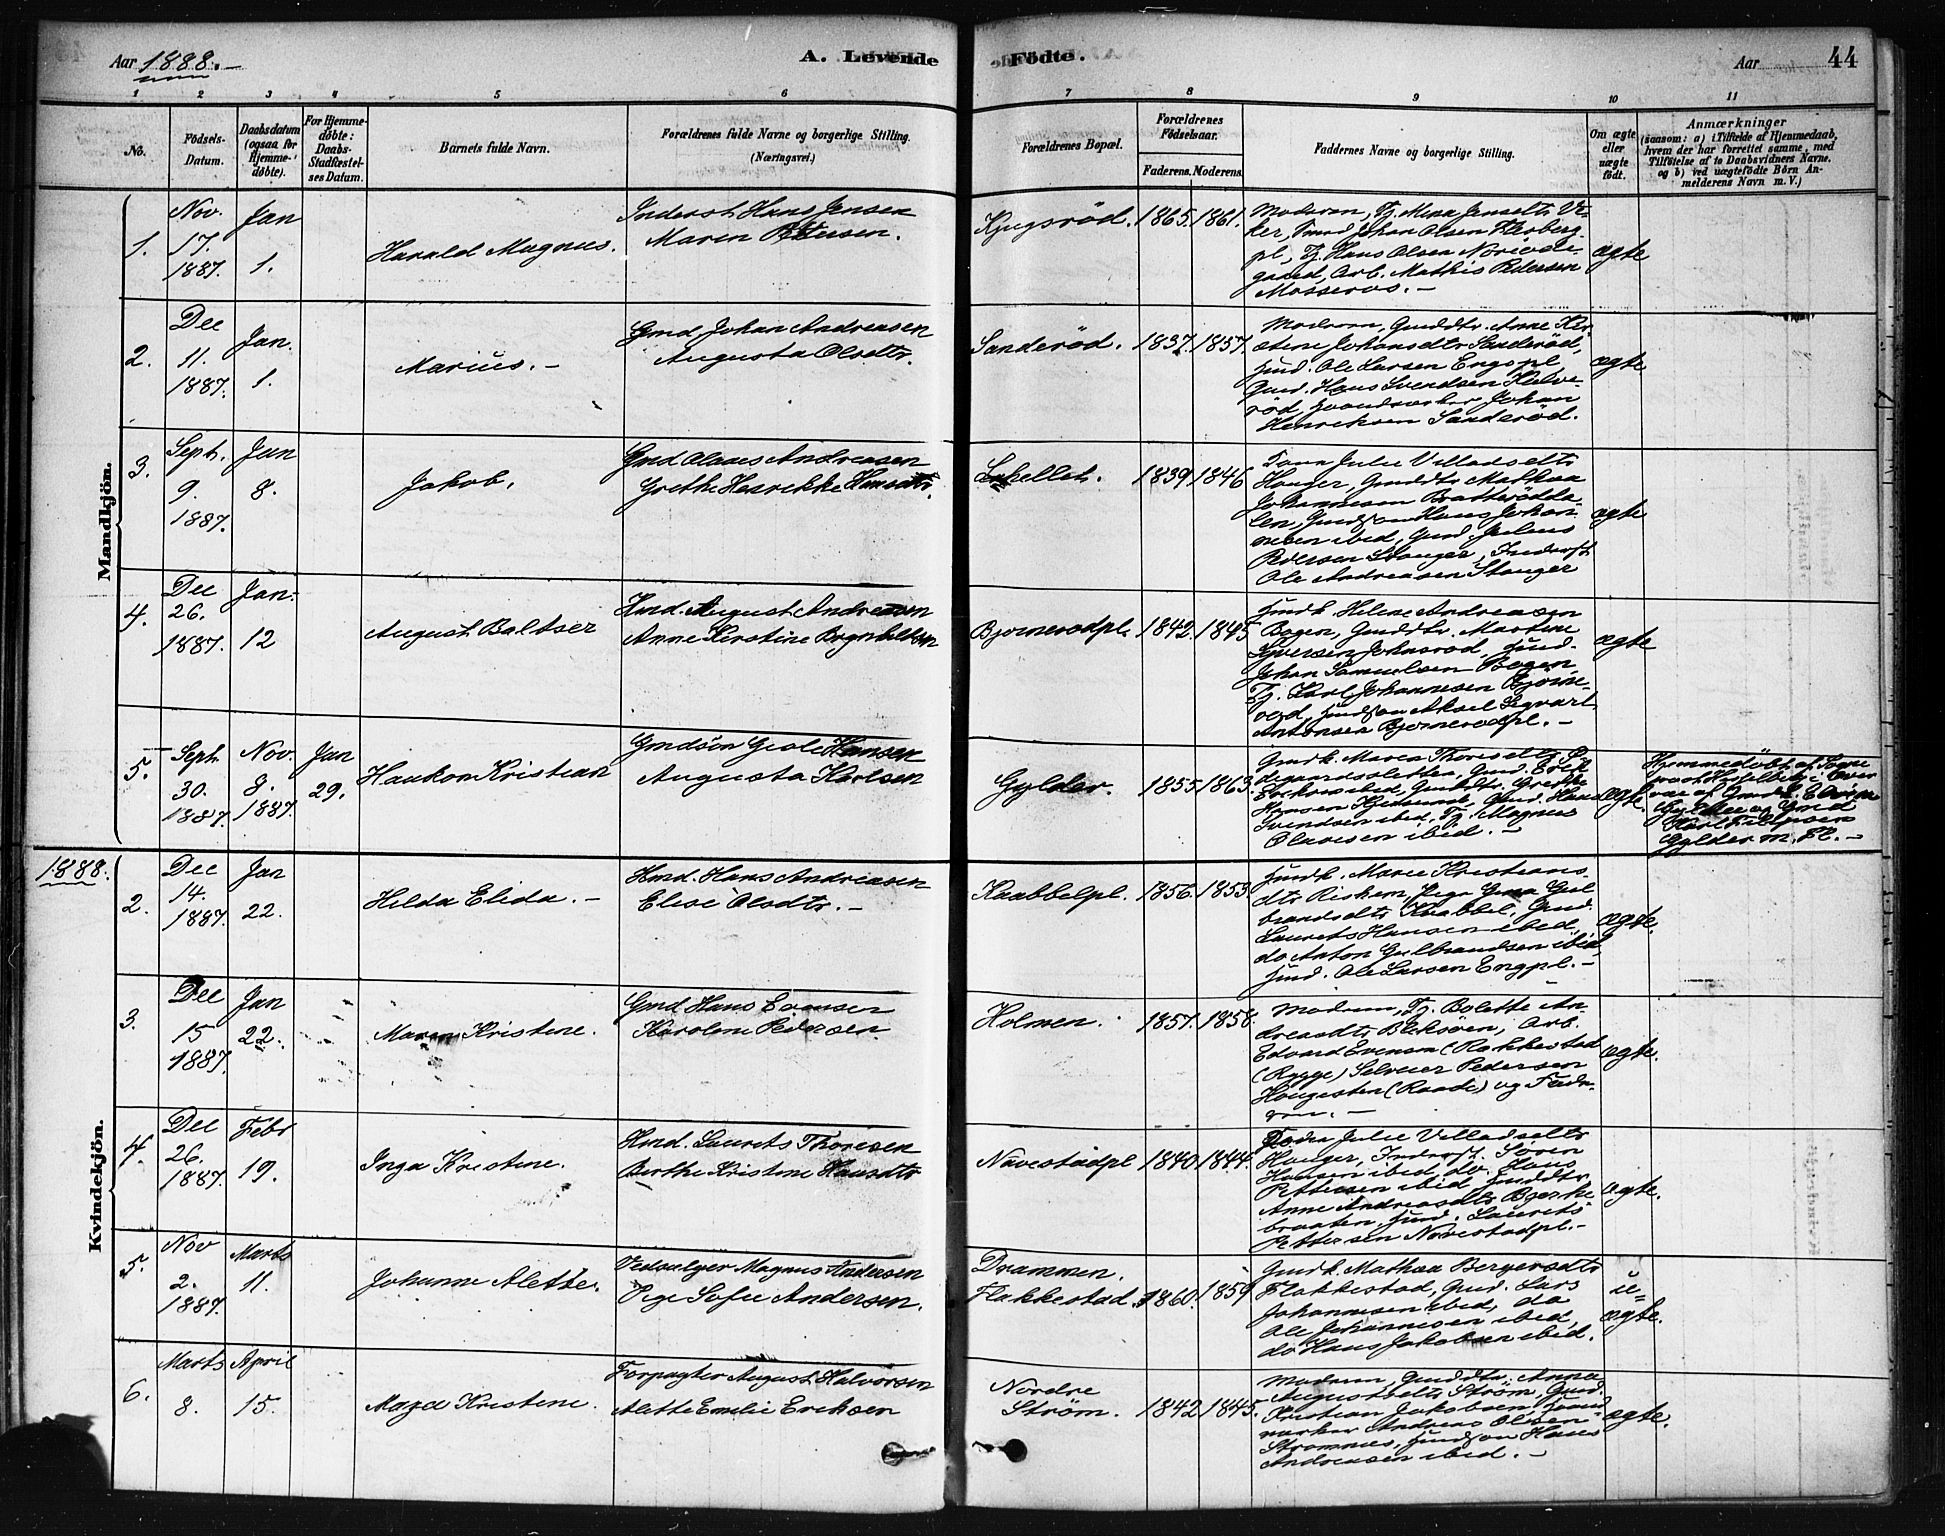 Aar 1888.
A. Levende Födte.
Aar 44
1 2 3 4 5 6 7 8 9 10 11
No.
Födsels-Datum.
Daabsdatum (ogsaa for Hjemme-döbte).
For Hjemme-döbte: Daabs-Stadfæstel-ses Datum.
Barnets fulde Navn.
Forældrenes fulde Navne og borgerlige Stilling. (Næringsvei.)
Forældrenes Bopæl.
Forældrenes Födselsaar.
Faderens. Moderens.
Faddernes Navne og borgerlige Stilling.
Om ægte eller uægte födt.
Anmærkninger
(saasom: a) i Tilfælde af Hjemmedaab, hvem der har forrettet samme, med Tilföielse af to Daabsvidners Navne. og b) ved uægtefödte Börn An-melderens Navn m. V.)
Mandkjön.
1. Nov. 17. 1887. Jan 1. Harald Magnus.
Inderst Hans Jensen
Maren Petersen.
Kjugsröd. 1865. 1861.
Moderen, Tj. Mina Jenselts
Johan Olsen
pl, Tj. Hans Olsen
gaard, Arb. Mathis Pedersen
Mosseros. —
ægte
2. Dec 11. 1887. Jan. 1. Marius. —
Gmd Johan Andreasen
Augusta Olsdtr.
Sanderöd. 1837. 1857.
Moderen, Gmddtr. Anne Kir-
stine Johansdtr Sanderöd,
Hmd. Ole Larsen Engspl,
Gmd. Hans Svendsen Halve-
röd, Haandværker Johan
Henriksen Sanderöd.
ægte
3. Sept. 9. 1887. Jan 8. Jakob.
Gmd Olaves Andreasen
Grethe Henrikke Hansdtr.
1839 1846
Julie Villadsdtr
Hauger, Gmddtr Mathea
Johannesen Bratterödda-
len, Gmdsøn Hans Johan-
nesen ibid, Gmd. Julius
Pedersen Stanger, Inderst
Ole Andreasen Stanger
ægte
4. Dec 26. 1887. Jan. 12 August Baltser
Hmd. August Andreasen
Anne Kirstine
Bjornerodpl. 1842. 1845
Hmdk. Helene Andreasen
Bogen, Gmddtr. Martine
Syversen Johnsrod, Hmd.
Johan Samuelsen Bogen,
Tj. Karl Johannesen Björne-
rød, Hmdsøn Aksel Sigvart
Antonsen Bjornerodpl. —
ægte
5. Sept 30. 1887. Nov. 8. 1887. Jan 29. Haakon Kristian
Gmdsön Hansen
Augusta Karlsen
Gylder. 1855 1863.
Gmdk. Maren Thorisdtr
ibid, Gmddtr. Grethe
Hansen Gmd. Hans
Svendsen ibid. Tj. Magnus
Olavesen ibid. —
ægte.
Hjemmedöbt af
Gylder og Gmd
Gylder m. Fl. —
1888.
Kvindekjön.
2. Dec 14. 1887. Jan 22. Hilda Elida. —
Hmd. Hans Andreasen
Elise Olsdtr. —
Kaabbelpl. 1856. 1853.
Hmdk. Maren Kristians-
dtr Pige Gul-
brandsdtr Knabbel, Gmd.
Laurits Hansen ibid,
do Anton Gulbrandsen ibid,
Hmd. Ole Larsen Engpl. —
ægte.
3. Dec 15 1887. Jan 22. Maren Kristine.
Gmd Hans Evensen
Karoline Pedersen.
Holmen. 1857. 1858.
Moderen, Tj. Bolette An-
dreasdtr Arb.
Edvard Evensen (Rakkestad
(Rygge) Pedersen
Haugesten (Raade) og Fade-
ren. —
ægte.
4. Dec 26. 1887. Febr 19. Inga Kristine.
Hmd. Laurets Thoresen
Berthe Kristine Hansdtr
Navestadpl 1840 1844.
Julie Villadsdtr
Hauger, Inderst. Sören
Hansen ibid, do. Hans
Pettersen ibid, Hmddtr
Anne Andreasdtr Bjerke-
braaten, Hmd. Laurits
Pettersen Navestadpl. —
ægte.
5. Nov 2. 1887. Marts 11. Johanne Alette.
Vedsælger Magnus Andersen
Pige Sofie Andersen.
Drammen.
Flakkestad. 1860. 1859
Gmdk. Mathea Bergersdtr
Flakkestad, Gmd. Lars
Johannesen ibid, do
Ole Johannesen ibid,
do Hans Jakobsen ibid.
u=
ægte.
6. Marts 8. April 15. Magda Kristine.
Forpagter August Halvorsen
Alette Emilie Eriksen
Nordre
Ström. 1842 1845.
Moderen, Gmddtr. Anna
Augustsdtr Ström, Gmd.
Kristian Jakobsen, Haand-
værker Andreas Olsen
Stromnes, Hmdsøn Hans
Andreasen ibid. —
ægte.